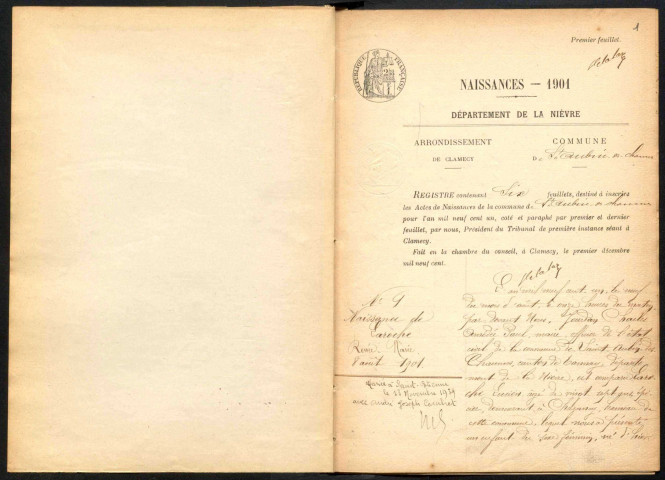 Premier feuillet.
RÉPUBLIQUE FRANÇAISE
NAISSANCES — 1901
DÉPARTEMENT DE LA NIÈVRE
ARRONDISSEMENT
DE CLAMECY
COMMUNE
DE St Aubin des Chaumes
REGISTRE contenant Six feuillets, destiné à inscrire
les Actes de Naissances de la commune de St Aubin des Chaumes
pour l'an mil neuf cent un, coté et paraphé par premier et dernier
feuillet, par nous, Président du Tribunal de première instance séant à
Clamecy.
Fait en la chambre du conseil, à Clamecy, le premier décembre
mil neuf cent.
Naissance de
Renée Marie
août 1901.
Mariée à Saint
le 23 Novembre 1929
avec André Joseph
L'an mil neuf cent un, le neuf
du mois d'août, à onze heures du matin,
par devant Nous, Jourdan Charles
Amédée Paul, maire officier de l'état
civil de la commune de Saint Aubin des
Chaumes, canton de Tannay, département
de la Nièvre, est comparu
âgé de vingt sept ans
demeurant à
cette commune, lequel nous a présenté
un enfant du sexe féminin, né d'hier